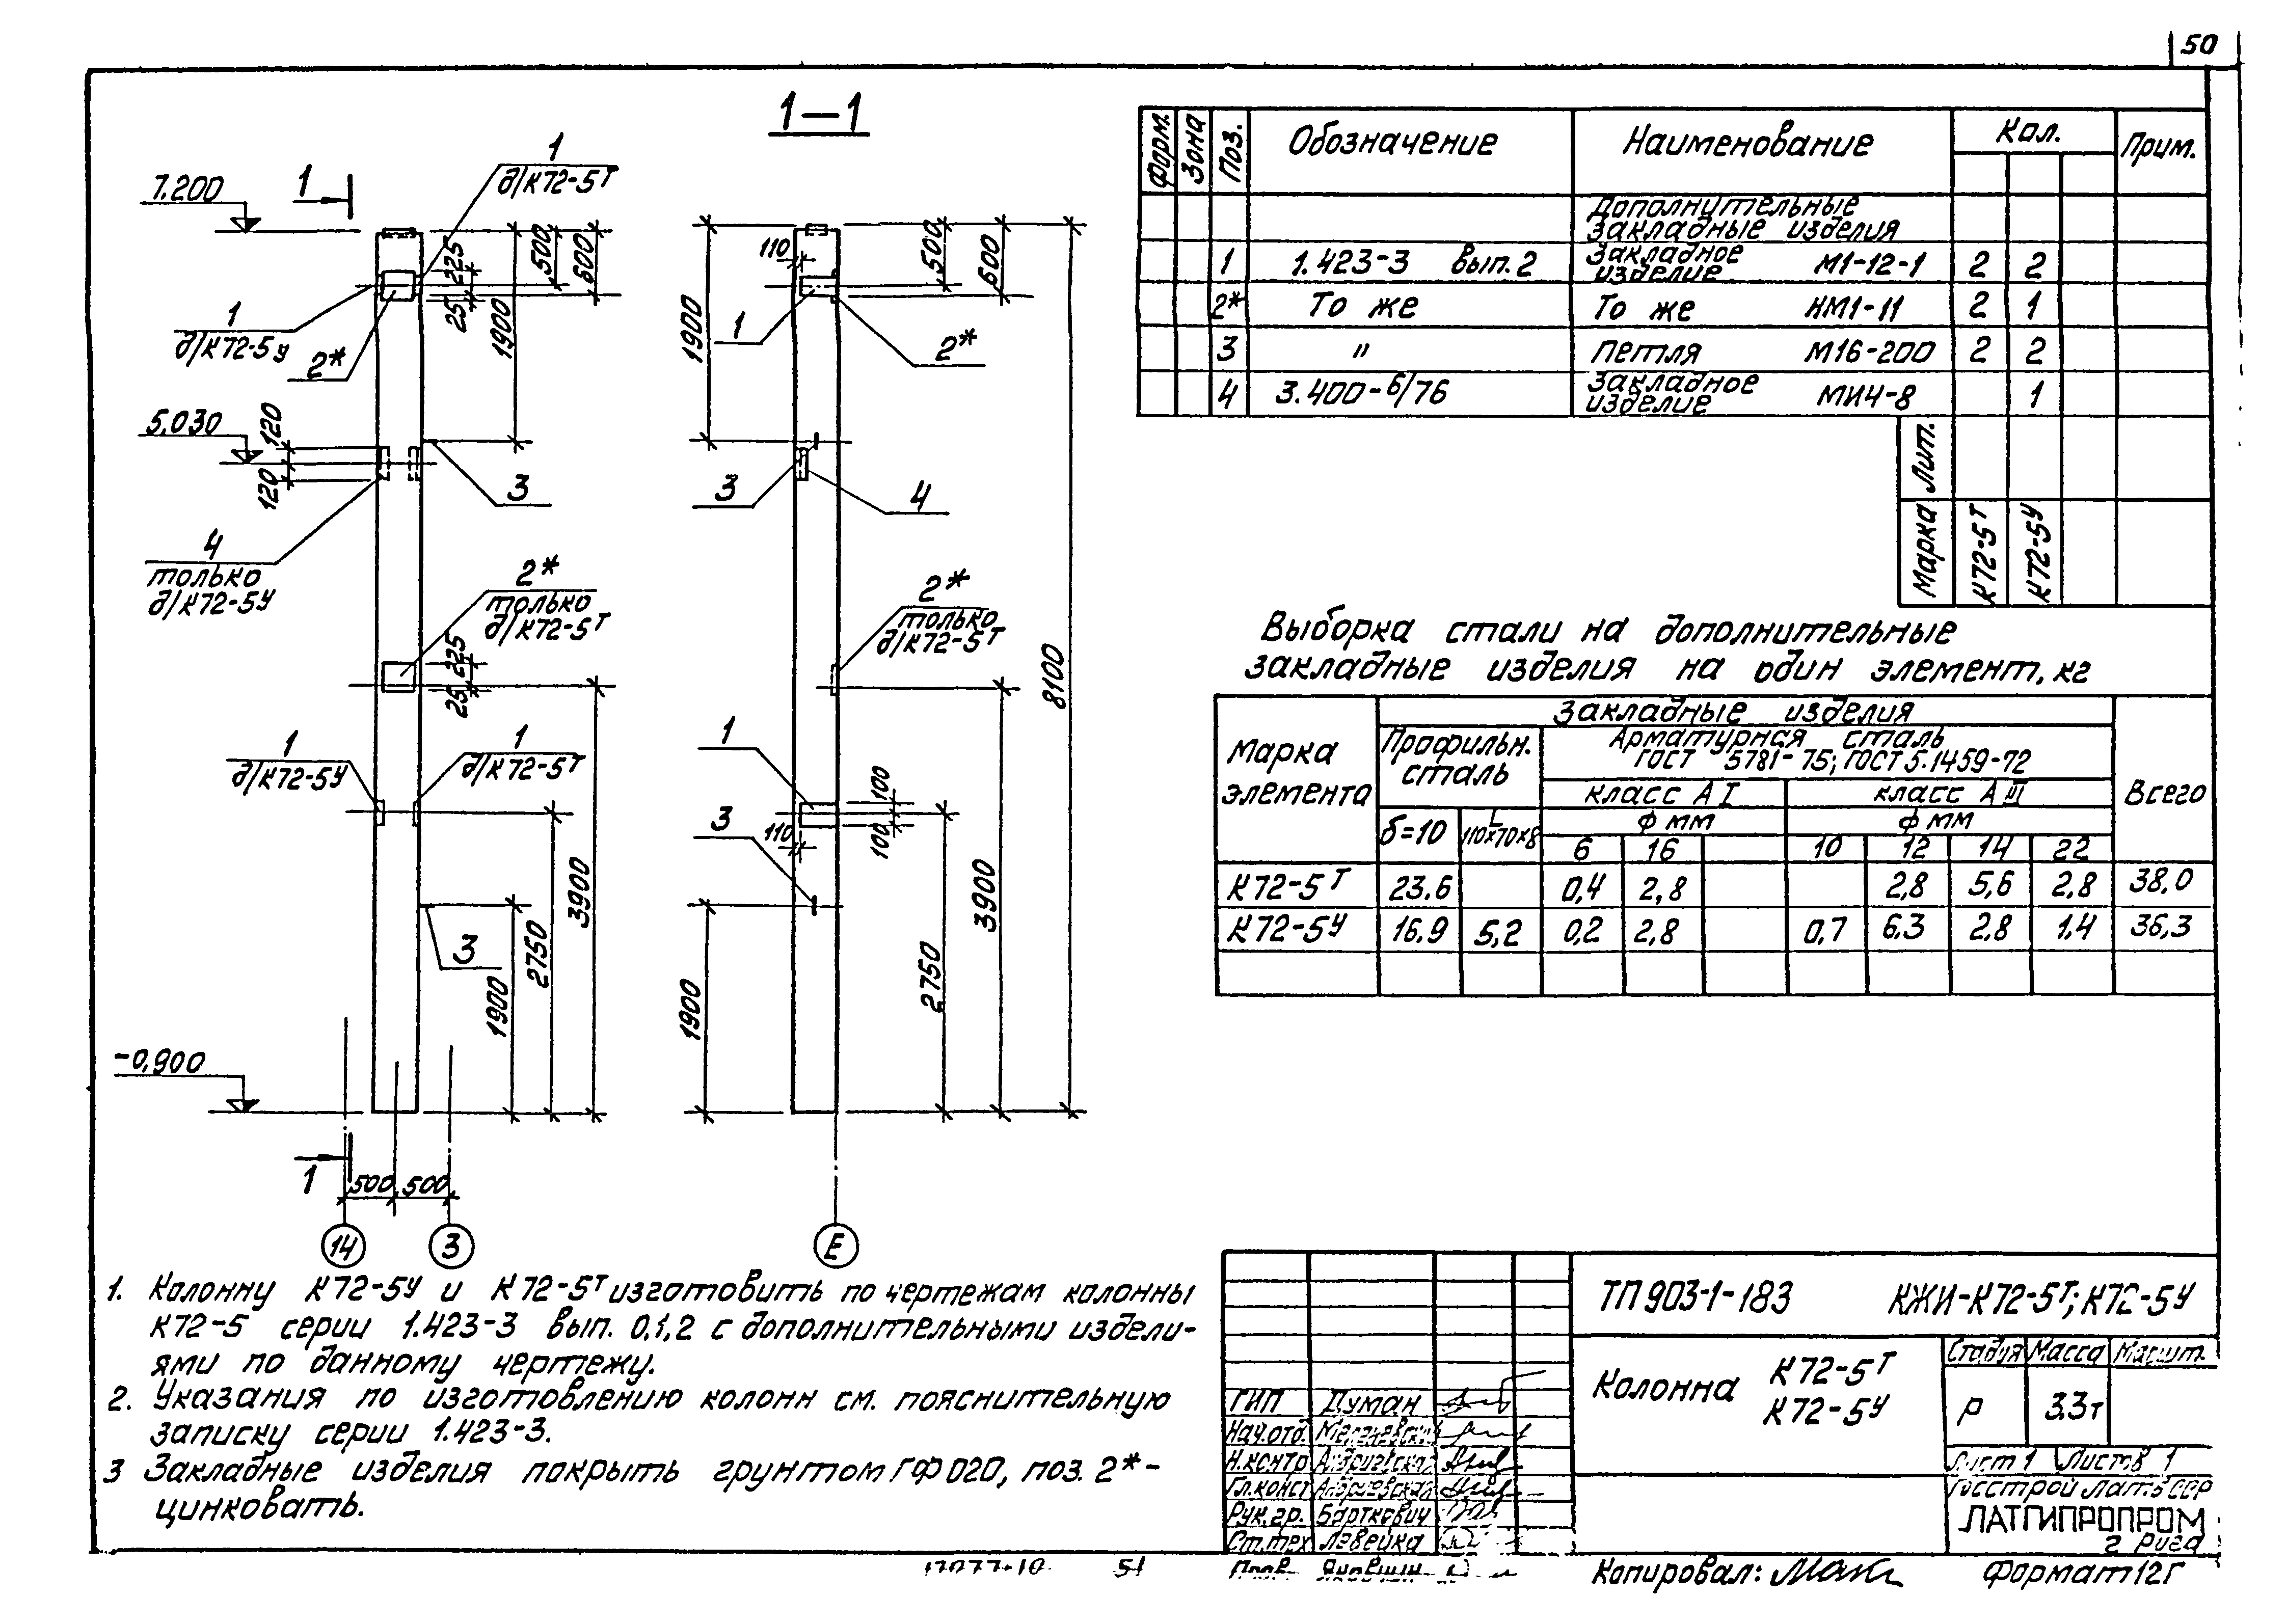 50
1—1
7.200
1
1
д/К72-5Т
225
25
500
600
1900
1
д/К72-5У
2*
5,030
120
120
3
4
только
д/К72-5У
2*
только
д/К72-5Т
225
25
1
д/К72-5У
1
д/К72-5Т
3
1900
2750
3900
-0,900
1
500
500
14
3
110
500
600
1900
1
2*
3
4
2*
только
д/К72-5Т
8100
1
100
100
3
110
1900
2750
3900
Е
Форм.
Зона
Поз.
Обозначение
Наименование
Кол.
Прим.
Дополнительные
закладные изделия
1 1.423-3 вып.2 Закладное изделие М1-12-1 2 2
2* То же То же НМ1-11 2 1
3 " Петля М16-200 2 2
4 3.400-6/76 Закладное изделие МИ4-8 1
Лит.
Марка
К72-5Т
К72-5У
Выборка стали на дополнительные
закладные изделия на один элемент, кг
Марка
элемента
Закладные изделия
Всего
Профильн.
сталь
Арматурная сталь
ГОСТ 5781-75; ГОСТ 5.1459-72
класс АI
класс АIII
δ=10
L
110×70×8
ф мм
ф мм
6 16 10 12 14 22
К72-5Т 23.6 0,4 2,8 2,8 5,6 2,8 38,0
К72-5У 16.9 5,2 0,2 2,8 0,7 6.3 2,8 1.4 36,3
1. Колонну К72-5У и К72-5Т изготовить по чертежам колонны
К72-5 серии 1.423-3 вып. 0,1,2 с дополнительными издели-
ями по данному чертежу.
2. Указания по изготовлению колонн см. пояснительную
записку серии 1.423-3.
3 Закладные изделия покрыть грунтом ГФ020, поз. 2*-
цинковать.
ТП 903-1-183 КЖИ-К72-5Т; К72-5У
Колонна К72-5Т
К72-5У
Стадия Масса Масшт.
Р 3.3т
Лист 1 Листов 1
Госстрой Латв ССР
ЛАТГИПРОПРОМ
г Рига
ГИП Думан
Нач.отд.
Н.контр
Гл.конст
Рук.гр. Барткевич
Ст.тех Левейка
51
Копировал:
Формат 12Г